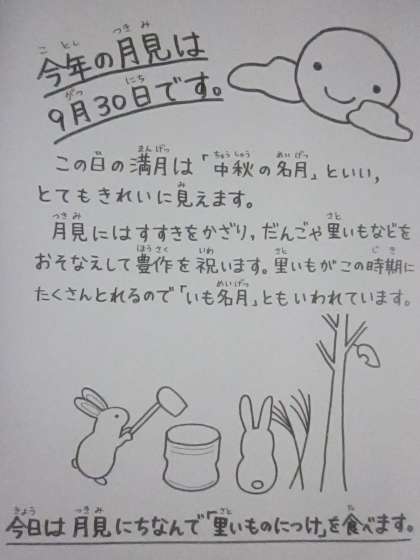 今年の月見は
9月30日です。
この日の満月は「中秋の名月」といい,
とてもきれいに見えます。
月見にはすすきをかざり,だんごや里いもなどを
おそなえして豊作を祝います。里いもがこの時期に
たくさんとれるので「いも名月」ともいわれています。
今日は月見にちなんで「里いものにつけ」を食べます。